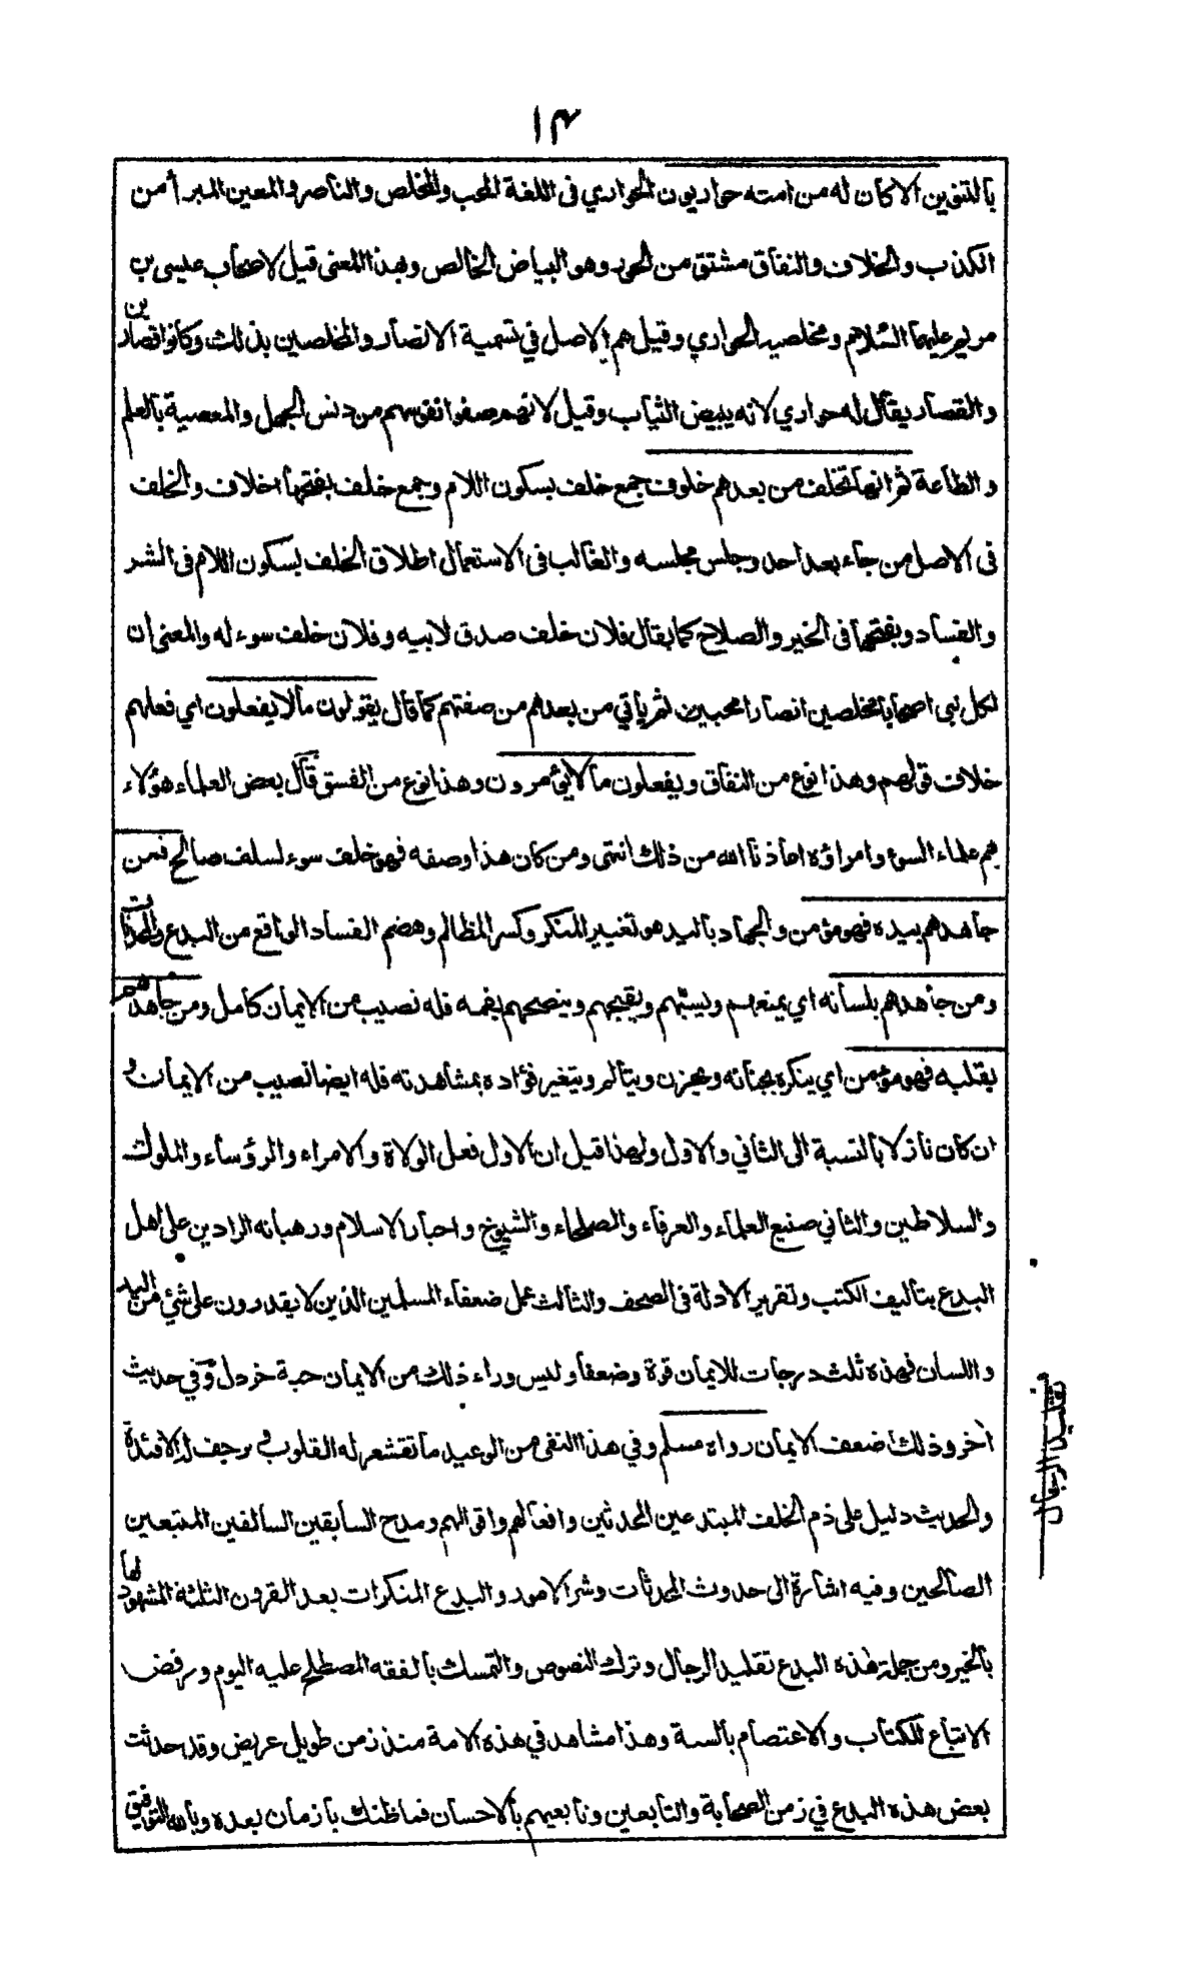 ١٣
بالتنوين الا كان له من امته حواريون الحواري فى اللغة المحب والمخلص والناصر والمعين المبرأ من
الكذب والخلاف والنفاق مشتق من الحور وهو البياض الخالص وبهذا المعنى قيل لاصحاب عيسى بن
مريم عليهما السلام ومخلصيه الحواري وقيل هم الاصل في تسمية الانصار والمخلصين بذلك وكانوا قصارين
والقصار يقال له حواري لانه يبيض الثياب وقيل لانهم صفوا نفوسهم من دنس الجهل والمعصية بالعلم
والطاعة ثم انها تخلف من بعدهم خلوف جمع خلف بسكون اللام وجمع خلف بفتحها اخلاف والخلف
فى الاصل من جاء بعد احد وجلس مجلسه والغالب فى الاستعمال اطلاق الخلف بسكون اللام فى الشر
والفساد وبفتحها فى الخير والصلاح كما يقال فلان خلف صدق لابيه وفلان خلف سوء له والمعنى ان
لكل نبى اصحابا مخلصين انصارا محبين ثم ياتي من بعدهم من صفتهم كما قال يقولون ما لا يفعلون اي فعلهم
خلاف قولهم وهذا نوع من النفاق ويفعلون ما لا يؤمرون وهذا نوع من الفسق قال بعض العلماء هؤلاء
هم علماء السوء وامراؤه اعاذنا الله من ذلك انتهى ومن كان هذا وصفه فهو خلف سوء لسلف صالح فمن
جاهدهم بيده فهو مؤمن والجهاد باليد هو تغيير المنكر وكسر المظالم وهضم الفساد الواقع من البدع والمحدثات
ومن جاهدهم بلسانه اي يمنعهم ويسبهم ويقبحهم وينصحهم بفمه فله نصيب من الايمان كامل ومن جاهدهم
بقلبه فهو مؤمن اي ينكره بجنانه ويحزن ويتألم ويتغير فؤاده بمشاهدته فله ايضا نصيب من الايمان و
ان كان نازلا بالنسبة الى الثاني والاول ولهذا قيل ان الاول فعل الولاة والامراء والرؤساء والملوك
والسلاطين والثاني صنيع العلماء والعرفاء والصلحاء والشيوخ واحبار الاسلام ورهبانه الرادين على اهل
البدع بتاليف الكتب وتقرير الادلة فى الصحف والثالث عمل ضعفاء المسلمين الذين لا يقدرون على شئ من اليد
واللسان فهذه ثلث درجات للايمان قوة وضعفا وليس وراء ذلك من الايمان حبة خردل وفي حديث
اخر وذلك اضعف الايمان رواه مسلم وفي هذا النفى من الوعيد ما تقشعر له القلوب و ترجف له الافئدة
والحديث دليل على ذم الخلف المبتدعين المحدثين وافعالهم واقوالهم ومدح السابقين السالفين المتبعين
الصالحين وفيه اشارة الى حدوث المحدثات وشر الامور والبدع المنكرات بعد القرون الثلثة المشهود لها
بالخير ومن جملة هذه البدع تقليد الرجال وترك النصوص والتمسك بالفقه المصطلح عليه اليوم ورفض
الاتباع للكتاب والاعتصام بالسنة وهذا مشاهد في هذه الامة منذ زمن طويل عريض وقد حدثت
بعض هذه البدع في زمن الصحابة والتابعين وتابعيهم بالاحسان فما ظنك بازمان بعده وبالله التوفيق
تقليد الرجال